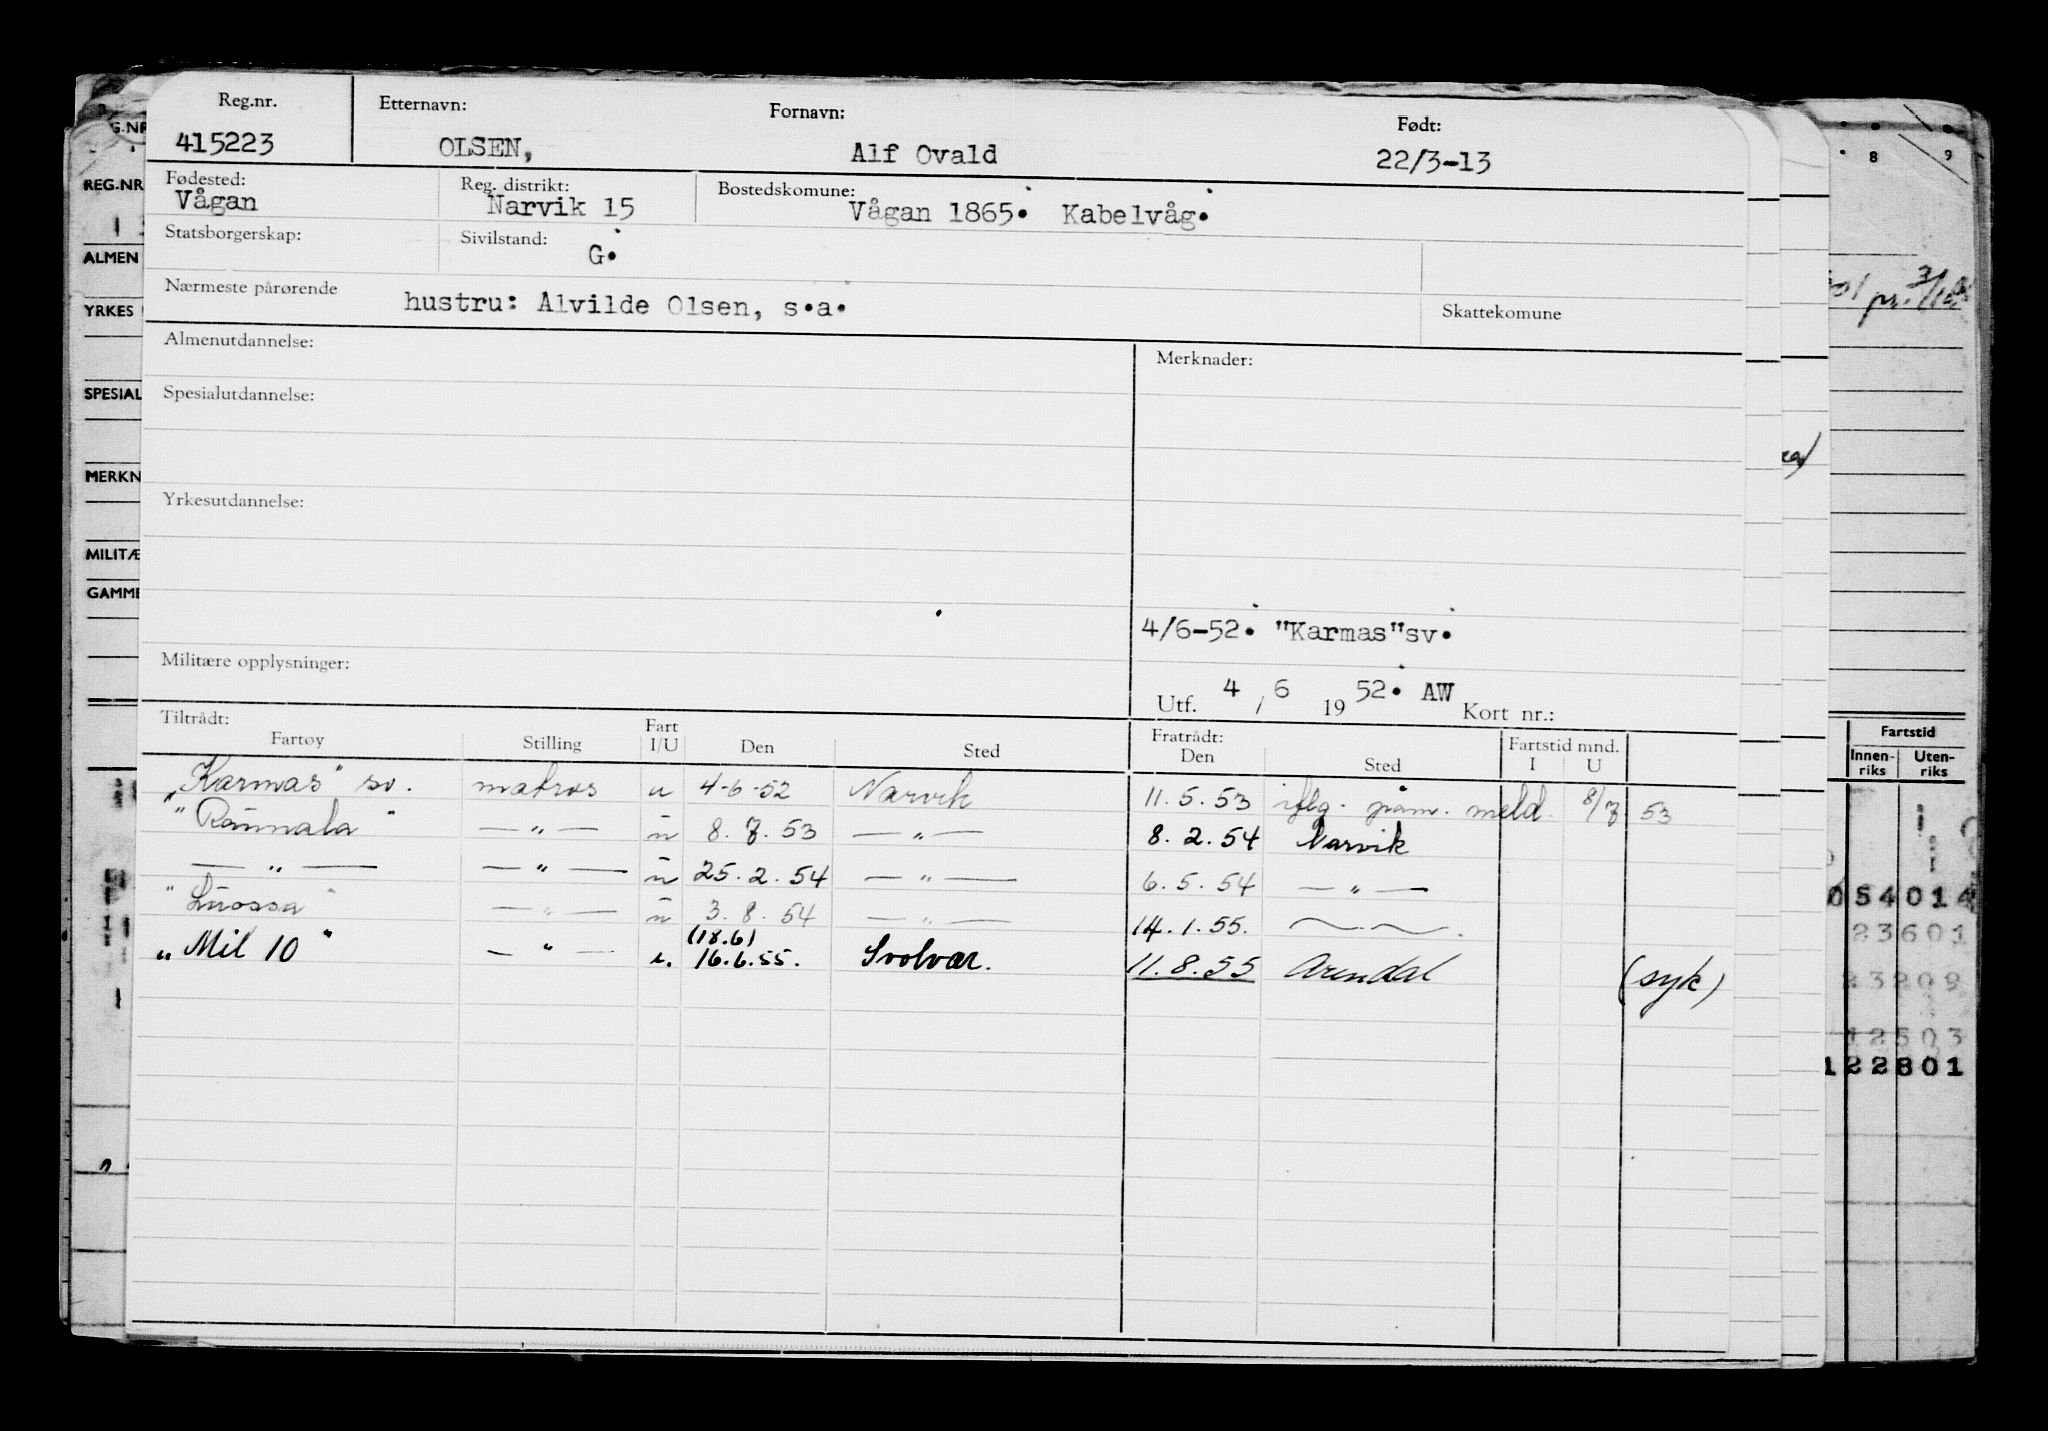 Reg.nr. Etternavn: Fornavn: Født:
415223 OLSEN, Alf Ovald 22/3-13
Fødested: Reg. distrikt: Bostedskomune:
Vågan Narvik 15 Vågan 1865. Kabelvåg.
Statsborgerskap: Sivilstand: G.
Nærmeste pårørende hustru: Alvilde Olsen, s.a. Skattekomune
Almenutdannelse: Merknader:
Spesialutdannelse:
Yrkesutdannelse:
4/6-52. "Karmas"sv.
Militære opplysninger:
Utf. 4 / 6 19 52. AW Kort nr.:
Tiltrådt: Fratrådt:
Fartøy Stilling Fart I/U Den Sted Den Sted Fartstid mnd. I U
"Karmas" sv. matros u 4-6-52 Narvik 11.5.53 iflg. påm. meld. 8/7 53
" " — " — u 8.7.53 — " — 8.2.54 Narvik
— " — — " — u 25.2.54 — " — 6.5.54 — " —
"Luossa" — " — u 3.8.54 — " — 14.1.55.
(18.6)
"Mil 10" — " — u. 16.6.55. Svolvær. 11.8.55 Arendal (syk)
REG.NR
ALMEN
YRKES
SPESIAL
MERKN
MILITÆ
GAMME
8 9
Fartstid
Innen-riks Uten-riks
54014
23601
23209
12503
122801